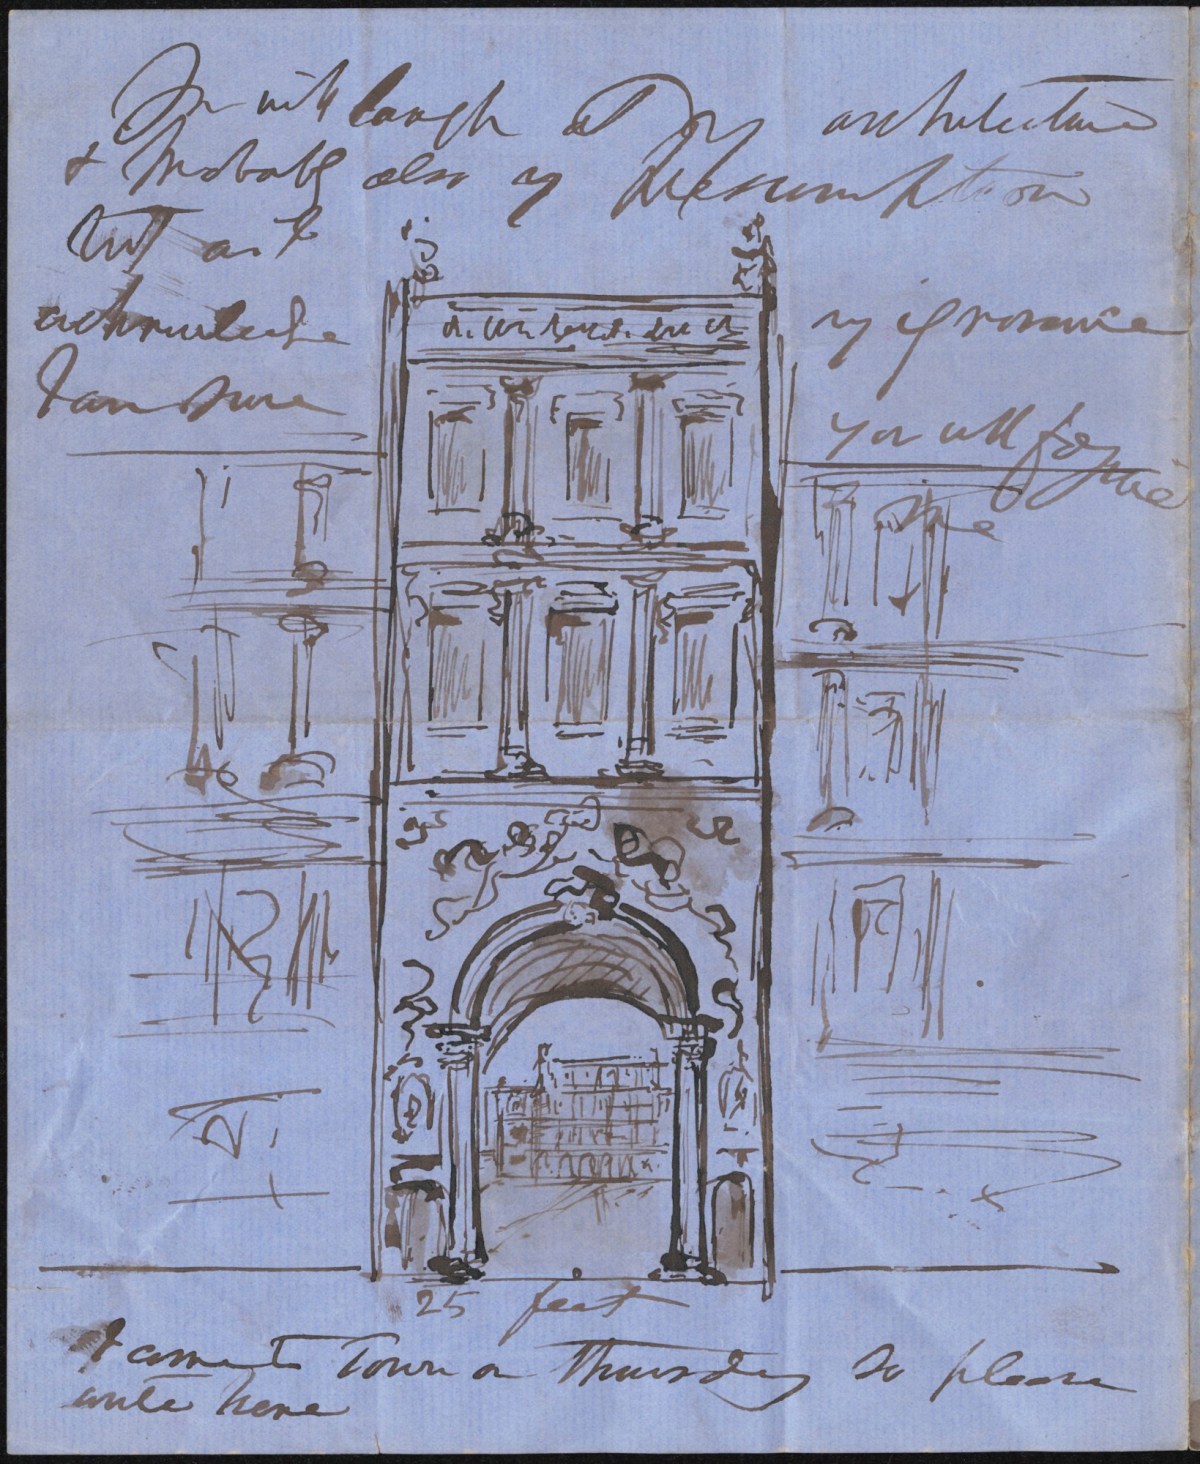 You will laugh at my architecture
& probably also my presumption
but as I
acknowledge my ignorance
I am sure you will forgive
me
25 feet
I come to Town on Thursday so please
write here